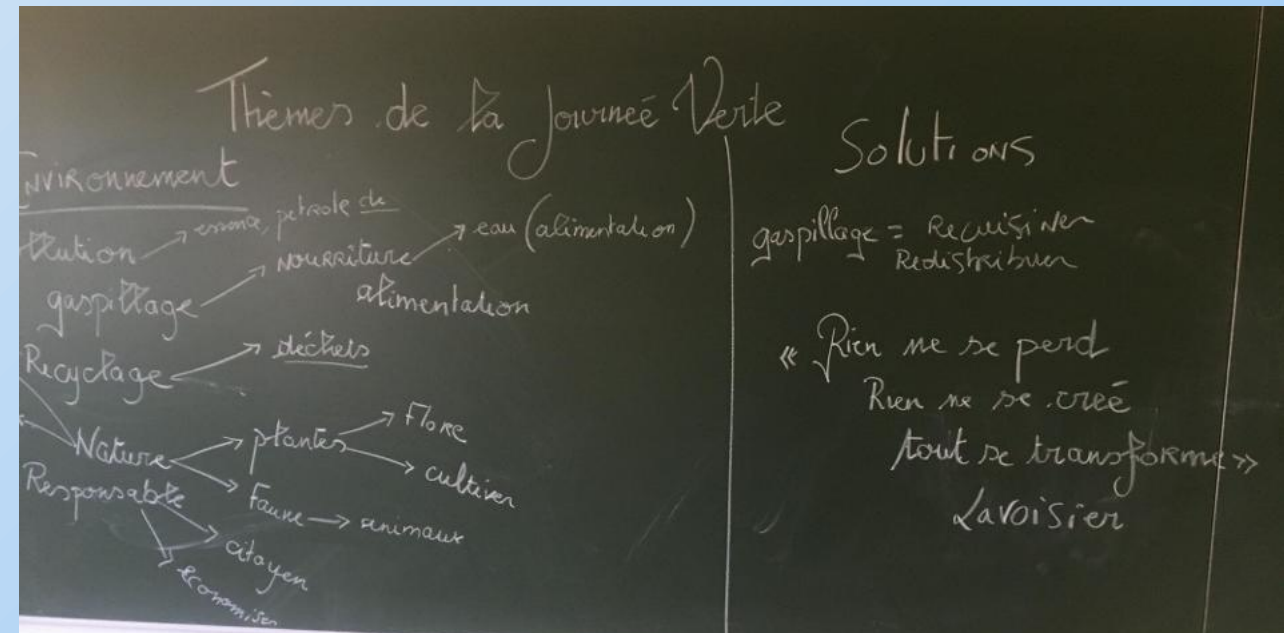 Thèmes de la Journeé Verte
Environnement
llution → essence, petrole de
gaspillage → nourriture → eau (alimentation)
alimentation
Recyclage → déchets
Nature → plantes → Flore
→ cultiver
→ Faune → animaux
Responsable
→ citoyen
→ économiser
Solutions
gaspillage =
Redistribuer
« Rien ne se perd
Rien ne se creé
tout se transforme »
Lavoisier